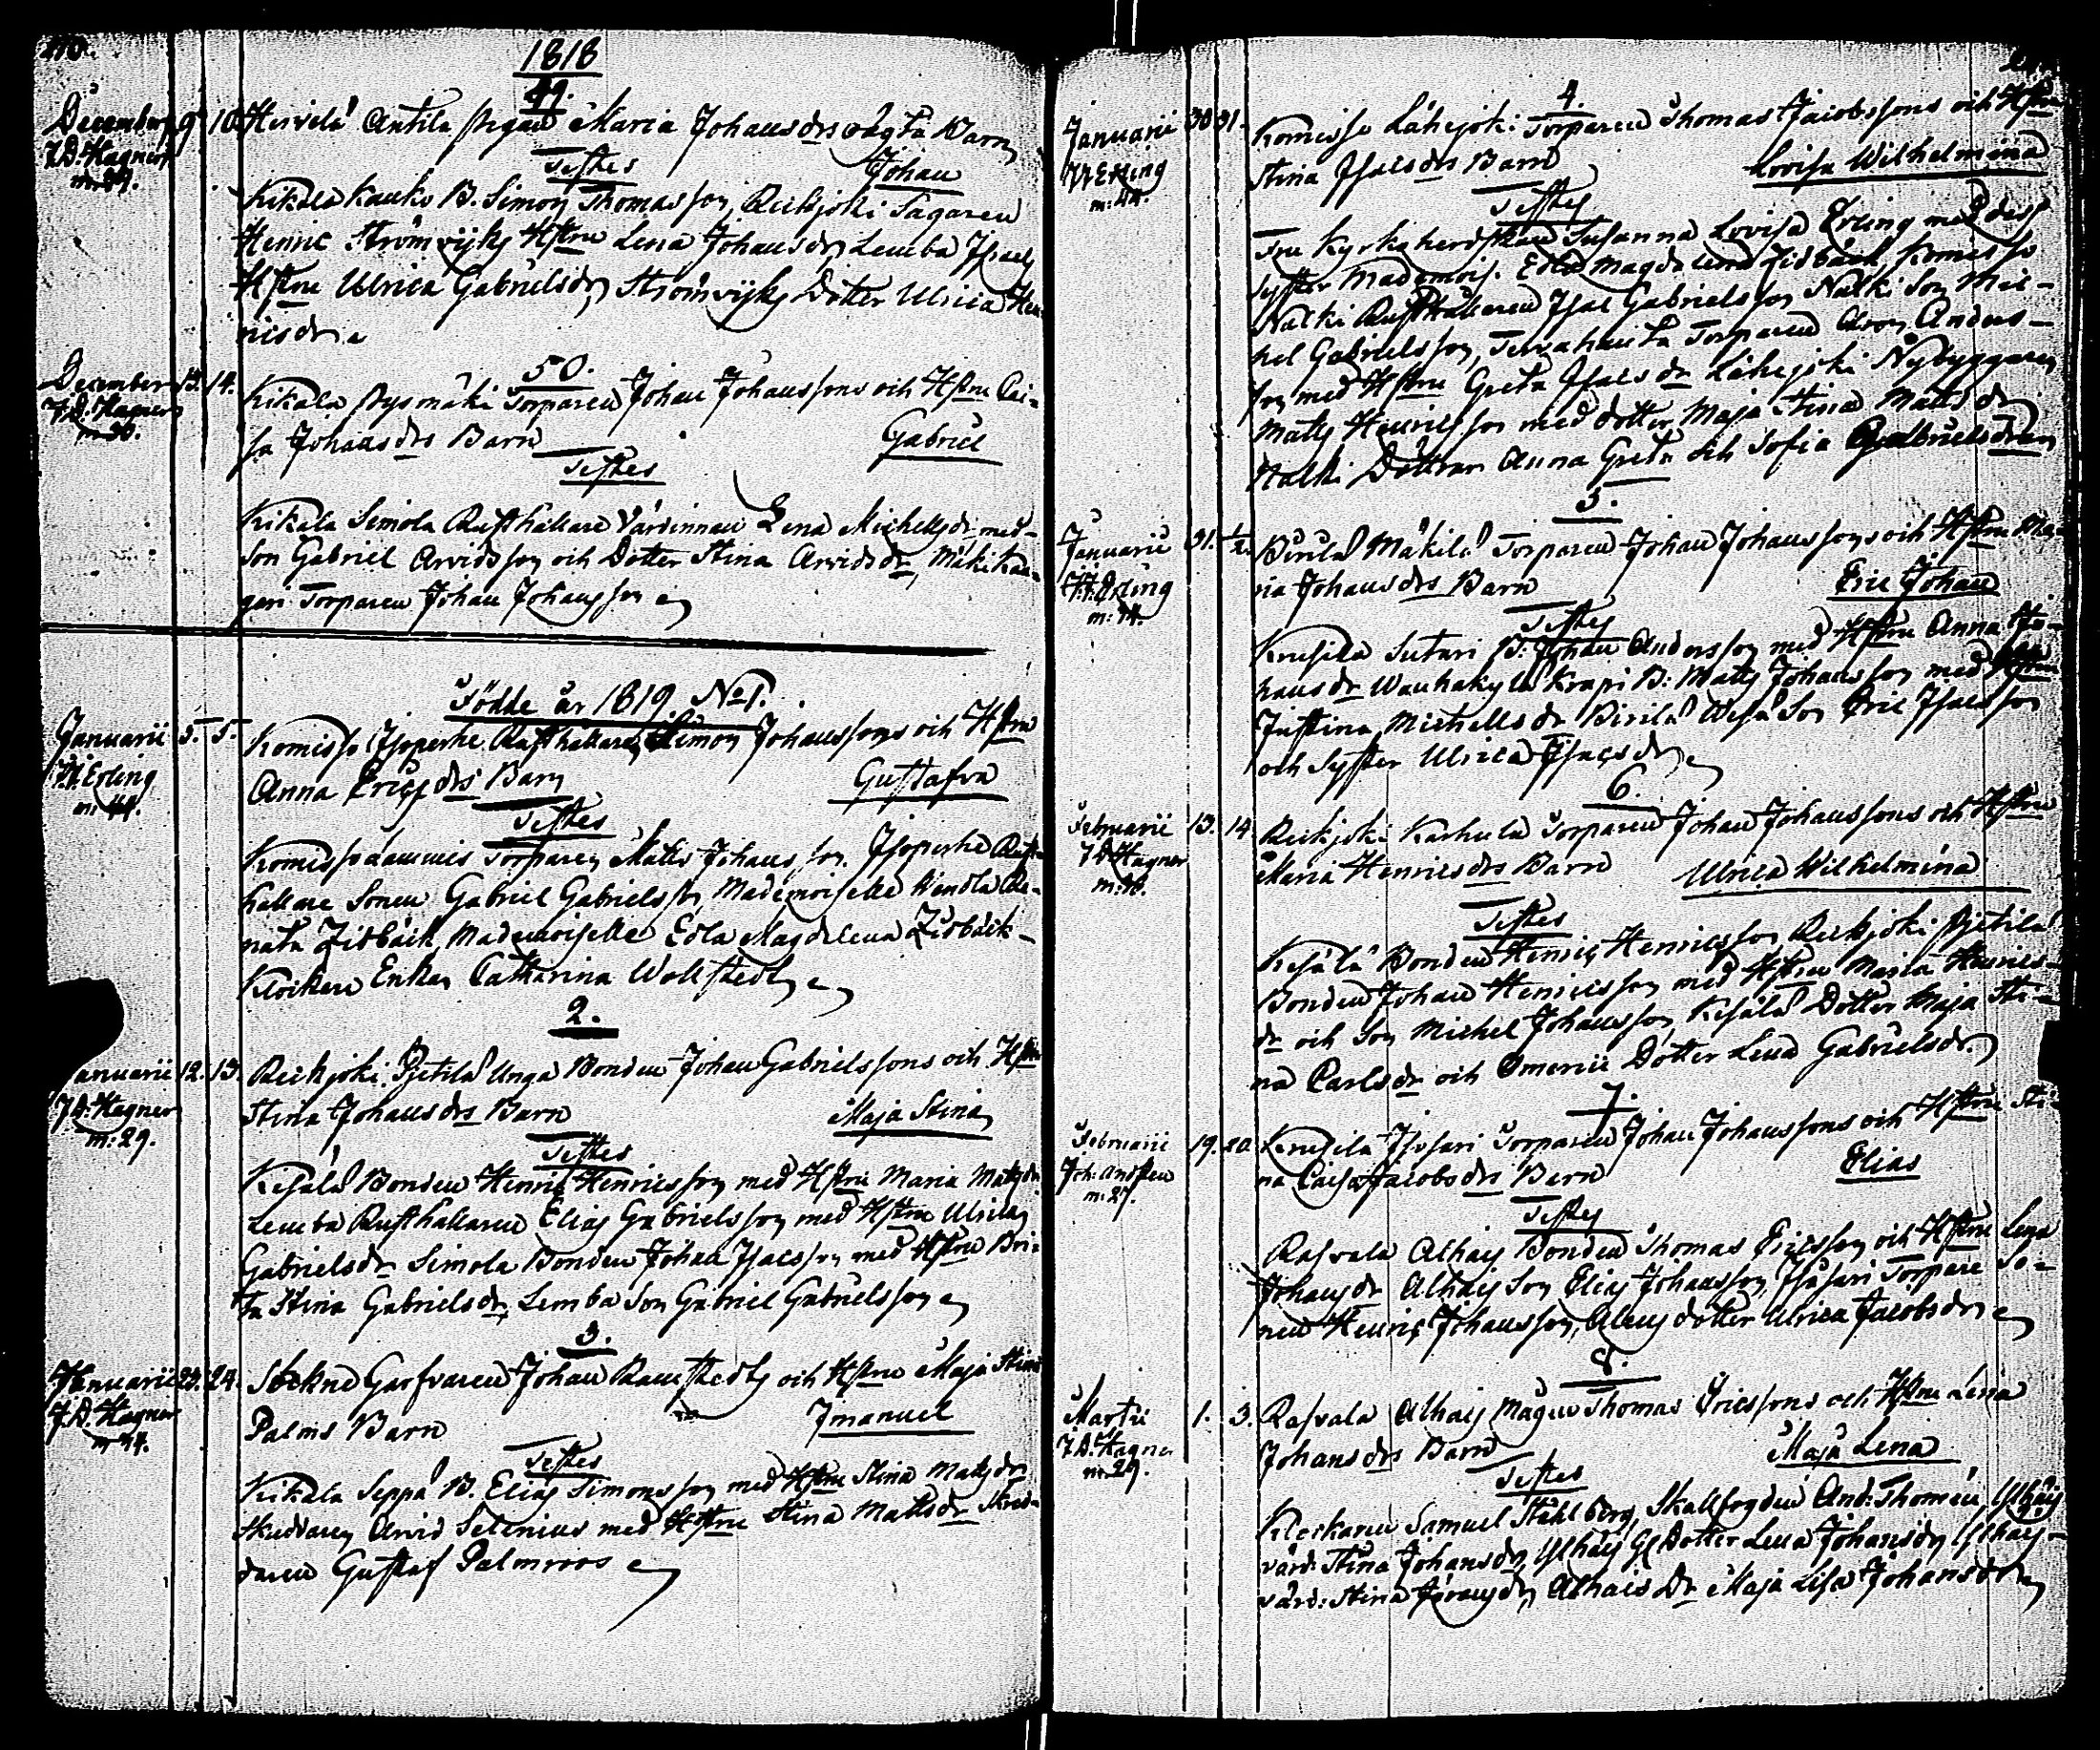 1818
49.
December 9 10 Hirvelä Antila Pigan Maria Johansdrs oägta Barn
J.D. Hagner Testes Johan
Kikala Kauko B. Simon Thomasson, Reikjoki Sågaren
Henric Strömvijks Hstru Lena Johansdr, Lemba Isaacs
Hstru Ulrica Gabrielsdr, Strömvijks Dotter Ulrica Hen-
ricsdr
50.
December 13. 14. Kikala Rysmäki Torparen Johan Johanssons och Hstru Cai-
J.D. Hagner sa Johansdrs Barn Gabriel
m: 36. Testes
Kikala Simola Rusthållare Värdinnan Lena Michelsdr med
Son Gabriel Arvidsson och Dotter Stina Arvidsdr, Mäkikan-
gari Torparen Johan Johansson
Födde år 1819 No 1.
Januarii 5. 5. Komisso Isoperhe Rusthållaren Simon Johanssons och Hstru
H. Erling Anna Ericsdrs Barn Gustafva
m: 44. Testes
Komisso Torparen Matts Johansson. Isoperhe Rust-
hållare Sonen Gabriel Gabrielsson, Mademoiselle Wendla Re-
nata Zidbäck Mademoiselle Edla Magdelena Zidbäck
Klockare Enkan Catharina Wollstedt
2.
anuarii 12. 13. Reikjoki Pjetilä Unga Bonden Johan Gabrielssons och Hstru
J.D. Hagner Stina Johansdrs Barn Maja Stina
m: 29. Testes
Kesälä Bonden Henric Henricsson med Hstru Maria Mattsdr
Lemba Rusthållaren Elias Gabrielsson med Hstru Ulrica
Gabrielsdr Simola Bonden Johan Isacsson med Hstru Bri-
ta Stina Gabrielsdr, Lemba Son Gabriel Gabrielsson
3.
Januarii 23. 24. Sockne Garfvaren Johan Ramstedts och Hstru Maja Stina
J.D. Hagner Palms Barn Imanuel
m 34. Testes
Kikala Seppä B. Elias Simonsson med Hstru Stina Mattsdr
Skreddaren Arvid Selenius med Hstru Stina Mattsdr Skred-
daren Gustaf Palmroos
4.
Januarii 30 31. Komisso Lähejoki Torparen Thomas Jacobssons och Hstru
Erling Stina Isacsdrs Barn Lovisa Wilhelmina
m: 44. Testes
Fru Kyrkoherdskan Susanna Lovisa Erling med dess
Syster Mademois. Edla Magdalena Zidbäck Komisso
Nalki Rusthållaren Isac Gabrielsson Nalki Son Mic-
hel Gabrielsson, Tervahauta Torparen Anders-
son med Hstru Greta Isacsdr Lähejoki Nybyggaren
Matts Henricsson med dotter Maja Stina Mattsdr
Nalki Döttrar Anna Greta och Sofia Gabrielsdrar
5.
Januarii 31. 1/2. Birilä Mäkilä Torparen Johan Johanssons och Hstru Ma-
H. Erling ria Johansdrs Barn Eric Johan
m: 34. Testes
Krusila Sutari B: Johan Andersson med Hstru Anna Jo-
hansdr Wanhakylä Krapi B: Matts Johansson med Hstru
Justina Michelsdr Birilä Wesa Son Eric Isacsson
och Syster Ulrica Isacsdr
6.
Februarii 13. 14 Reikjoki Karhula Torparen Johan Johanssons och Hstru
J.D. Hagner Maria Henricsdrs Barn Ulrica Wilhelmina
Testes
Kesälä Bonden Henric Henricsson, Reikjoki Pjetilä
Bonden Johan Henricsson med Hstru Maria Henrics-
dr och Son Michel Johansson, Kesälä Dotter Maja Sti-
na Carlsdr och Omerii Dotter Lena Gabrielsdr.
7.
Februarii 19. 20 Krusila Isosari Torparen Johan Johanssons och Hstru Sti-
na Caisa Jacobsdrs Barn Elias
m: 27. Testes
Rasvala Alhais Bonden Thomas Ericsson och Hstru Lena
Johansdr Alhais Son Elias Johansson, Isosari Torpare So-
nen Henric Johansson, dotter Ulrica Jacobsdr
8.
Martii 1. 3. Rasvala Alhais Mågen Thomas Ericssons och Hstru Lena
J.D. Hagner Johansdrs Barn Maja Lena
m: 29. Testes
Klockaren Samuel Ståhlberg, Skallfogden And: Thomén, Ylhäis
värd: Stina Johansdr, Ylhäis Dotter Lena Johansdr Ylhäis
värd: Stina Göransdr, Alhais Dr Maja Lisa Johansdr